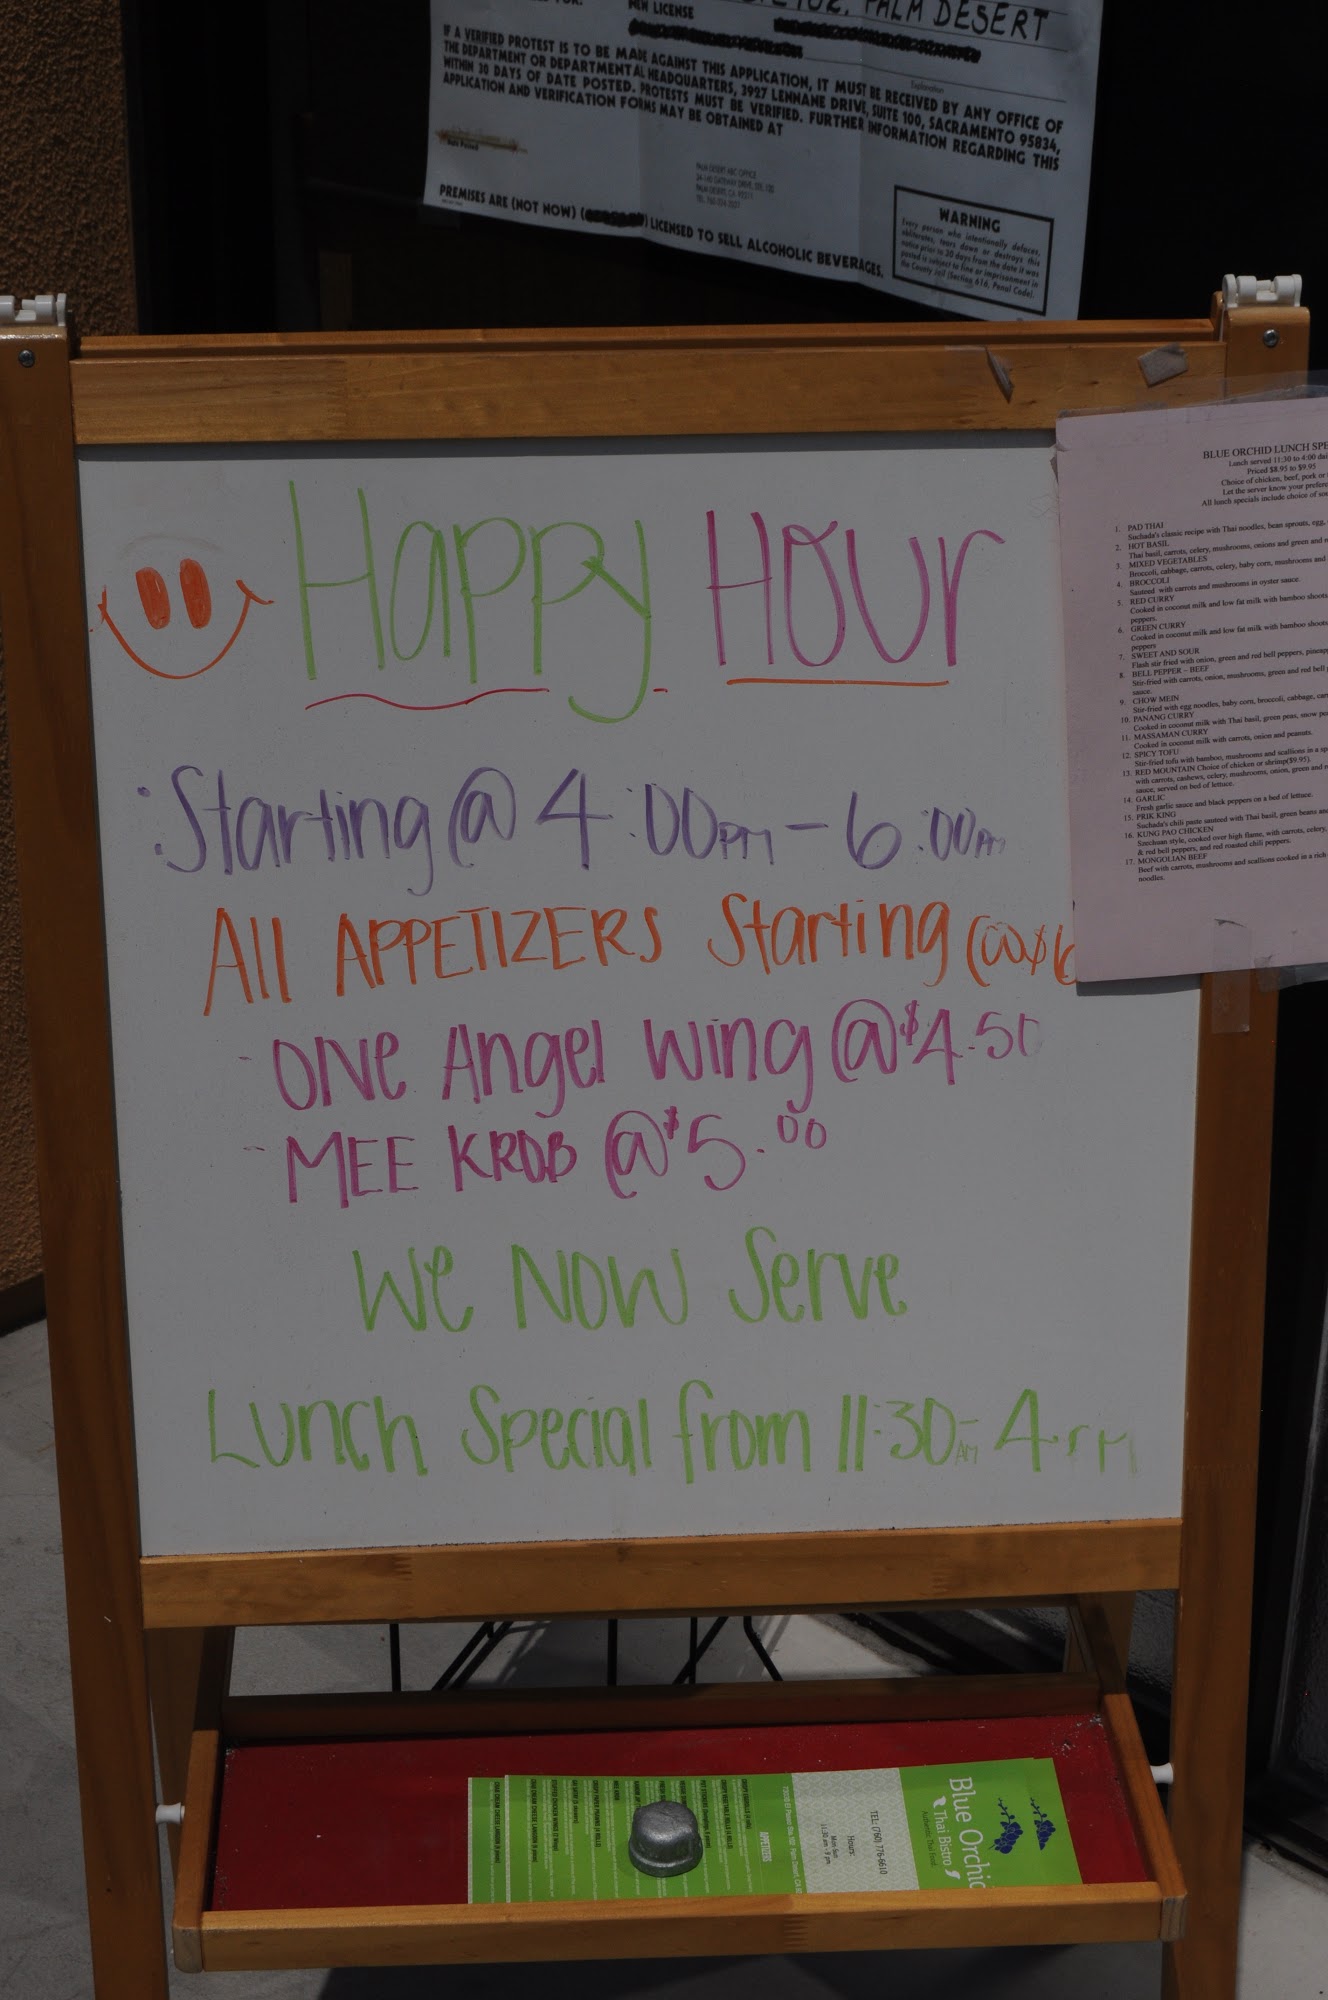 NEW LICENSE
PALM DESERT
IF A VERIFIED PROTEST IS TO BE MADE AGAINST THIS APPLICATION, IT MUST BE RECEIVED BY ANY OFFICE OF
THE DEPARTMENT OR DEPARTMENTAL HEADQUARTERS, 3927 LENNANE DRIVE, SUITE 100, SACRAMENTO 95834,
WITHIN 30 DAYS OF DATE POSTED. PROTESTS MUST BE VERIFIED. FURTHER INFORMATION REGARDING THIS
APPLICATION AND VERIFICATION FORMS MAY BE OBTAINED AT
Date Posted
PALM DESERT ABC OFFICE
PREMISES ARE (NOT NOW) ( ) LICENSED TO SELL ALCOHOLIC BEVERAGES.
WARNING
Every person who intentionally defaces,
obliterates, tears down or destroys this
notice prior to 30 days from the date it was
posted is subject to fine or imprisonment in
the County Jail (Section 616, Penal Code).
Happy Hour
Starting @ 4:00PM - 6:00
All APPETIZERS Starting @ $6
- ONE Angel Wing @ $4.50
- MEE KROB @ $5.00
We Now Serve
Lunch Special from 11:30AM - 4PM
BLUE ORCHID LUNCH SPE
Lunch served 11:30 to 4:00 dai
Priced $8.95 to $9.95
Choice of chicken, beef, pork or
Let the server know your prefere
All lunch specials include choice of sou
1. PAD THAI
Suchada's classic recipe with Thai noodles, bean sprouts, egg,
2. HOT BASIL
Thai basil, carrots, celery, mushrooms, onions and green and
3. MIXED VEGETABLES
Broccoli, cabbage, carrots, celery, baby corn, mushrooms and
4. BROCCOLI
Sauteed with carrots and mushrooms in oyster sauce.
5. RED CURRY
Cooked in coconut milk and low fat milk with bamboo shoots
peppers.
6. GREEN CURRY
Cooked in coconut milk and low fat milk with bamboo shoots
peppers
7. SWEET AND SOUR
Flash stir fried with onion, green and red bell peppers, pineap
8. BELL PEPPER - BEEF
Stir-fried with carrots, onion, mushrooms, green and red bell
sauce.
9. CHOW MEIN
Stir-fried with egg noodles, baby corn, broccoli, cabbage, car
10. PANANG CURRY
Cooked in coconut milk with Thai basil, green peas, snow
11. MASSAMAN CURRY
Cooked in coconut milk with carrots, onion and peanuts.
12. SPICY TOFU
Stir-fried tofu with bamboo, mushrooms and scallions in a
13. RED MOUNTAIN Choice of chicken or shrimp($9.95).
with carrots, cashews, celery, mushrooms, onion, green and
sauce, served on bed of lettuce.
14. GARLIC
Fresh garlic sauce and black peppers on a bed of lettuce.
15. PRIK KING
Suchada's chili paste sauteed with Thai basil, green beans and
16. KUNG PAO CHICKEN
Szechuan style, cooked over high flame, with carrots, celery,
& red bell peppers, and red roasted chili peppers.
17. MONGOLIAN BEEF
Beef with carrots, mushrooms and scallions cooked in a rich
noodles.
Blue Orchid
Thai Bistro
Authentic Thai Food
TEL: (760) 776-6610
Hours:
Mon-Sun
11:30 am - 9 pm
APPETIZERS